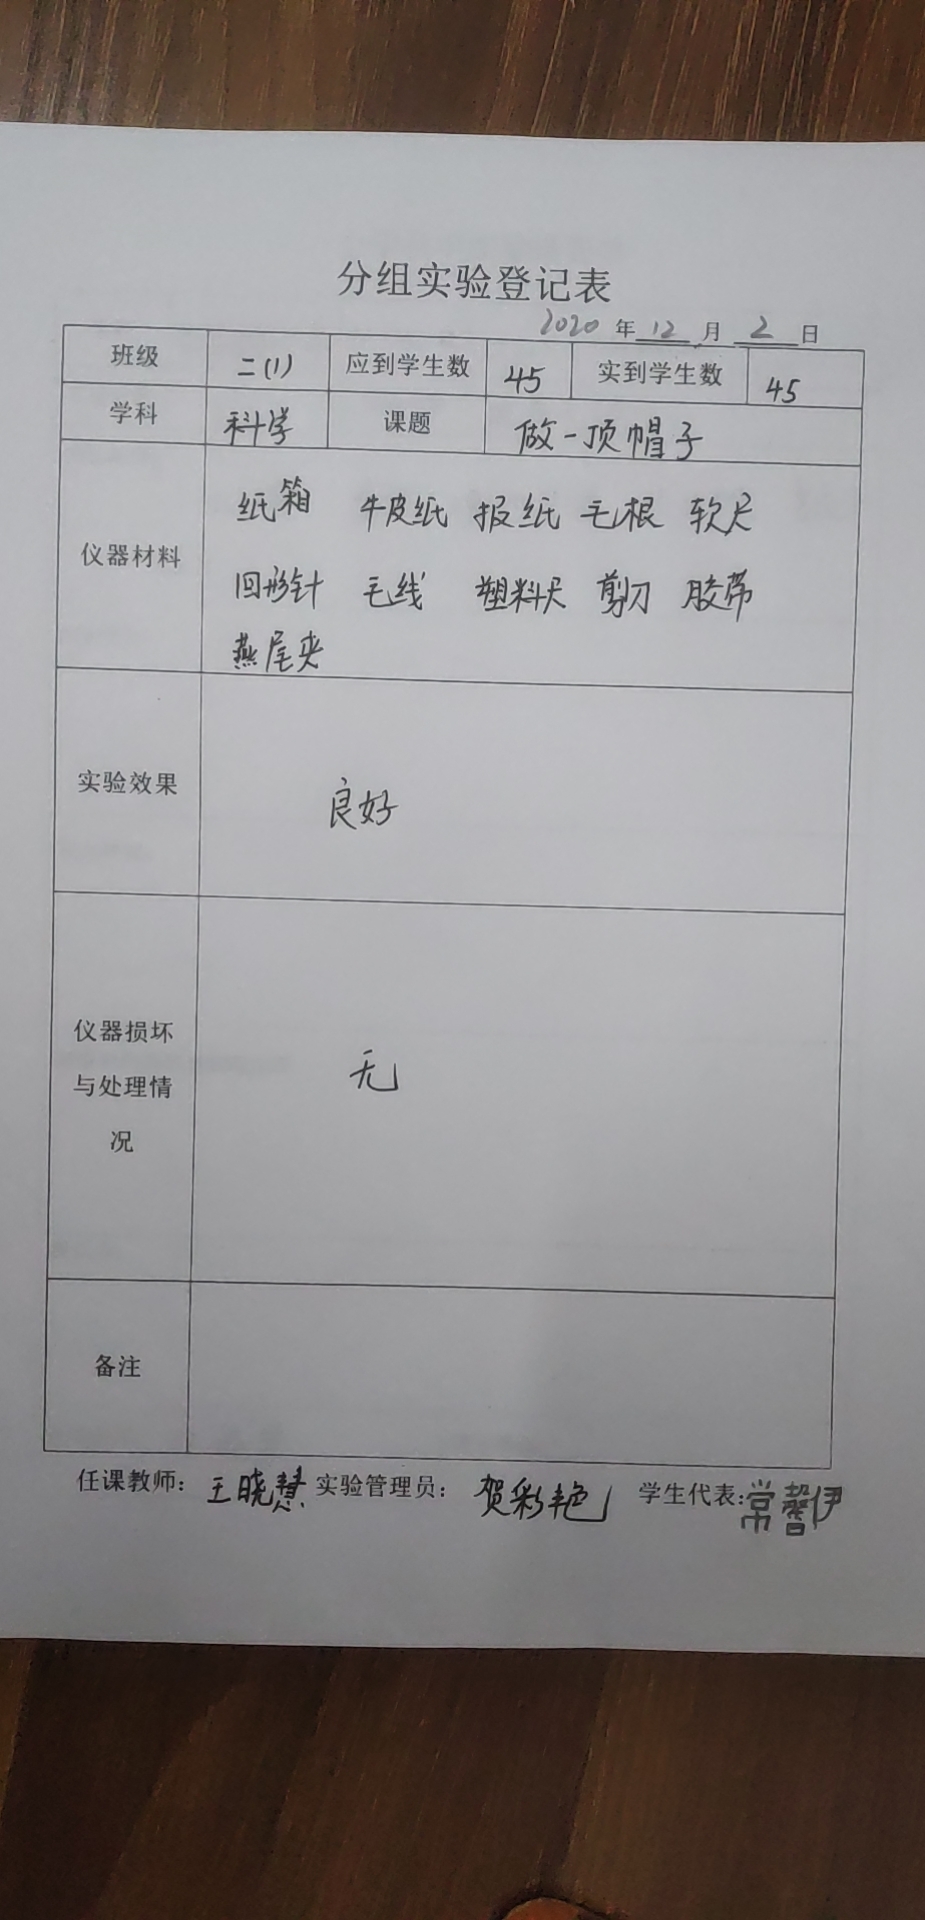 分组实验登记表
2020 年 12 月 2 日
班级 二(1) 应到学生数 45 实到学生数 45
学科 科学 课题 做一顶帽子
仪器材料
纸箱 牛皮纸 报纸 毛根 软尺
回形针 毛线 塑料尺 剪刀 胶带
燕尾夹
实验效果 良好
仪器损坏
与处理情
况
无
备注
任课教师：王晓慧 实验管理员：贺彩艳 学生代表：常馨伊